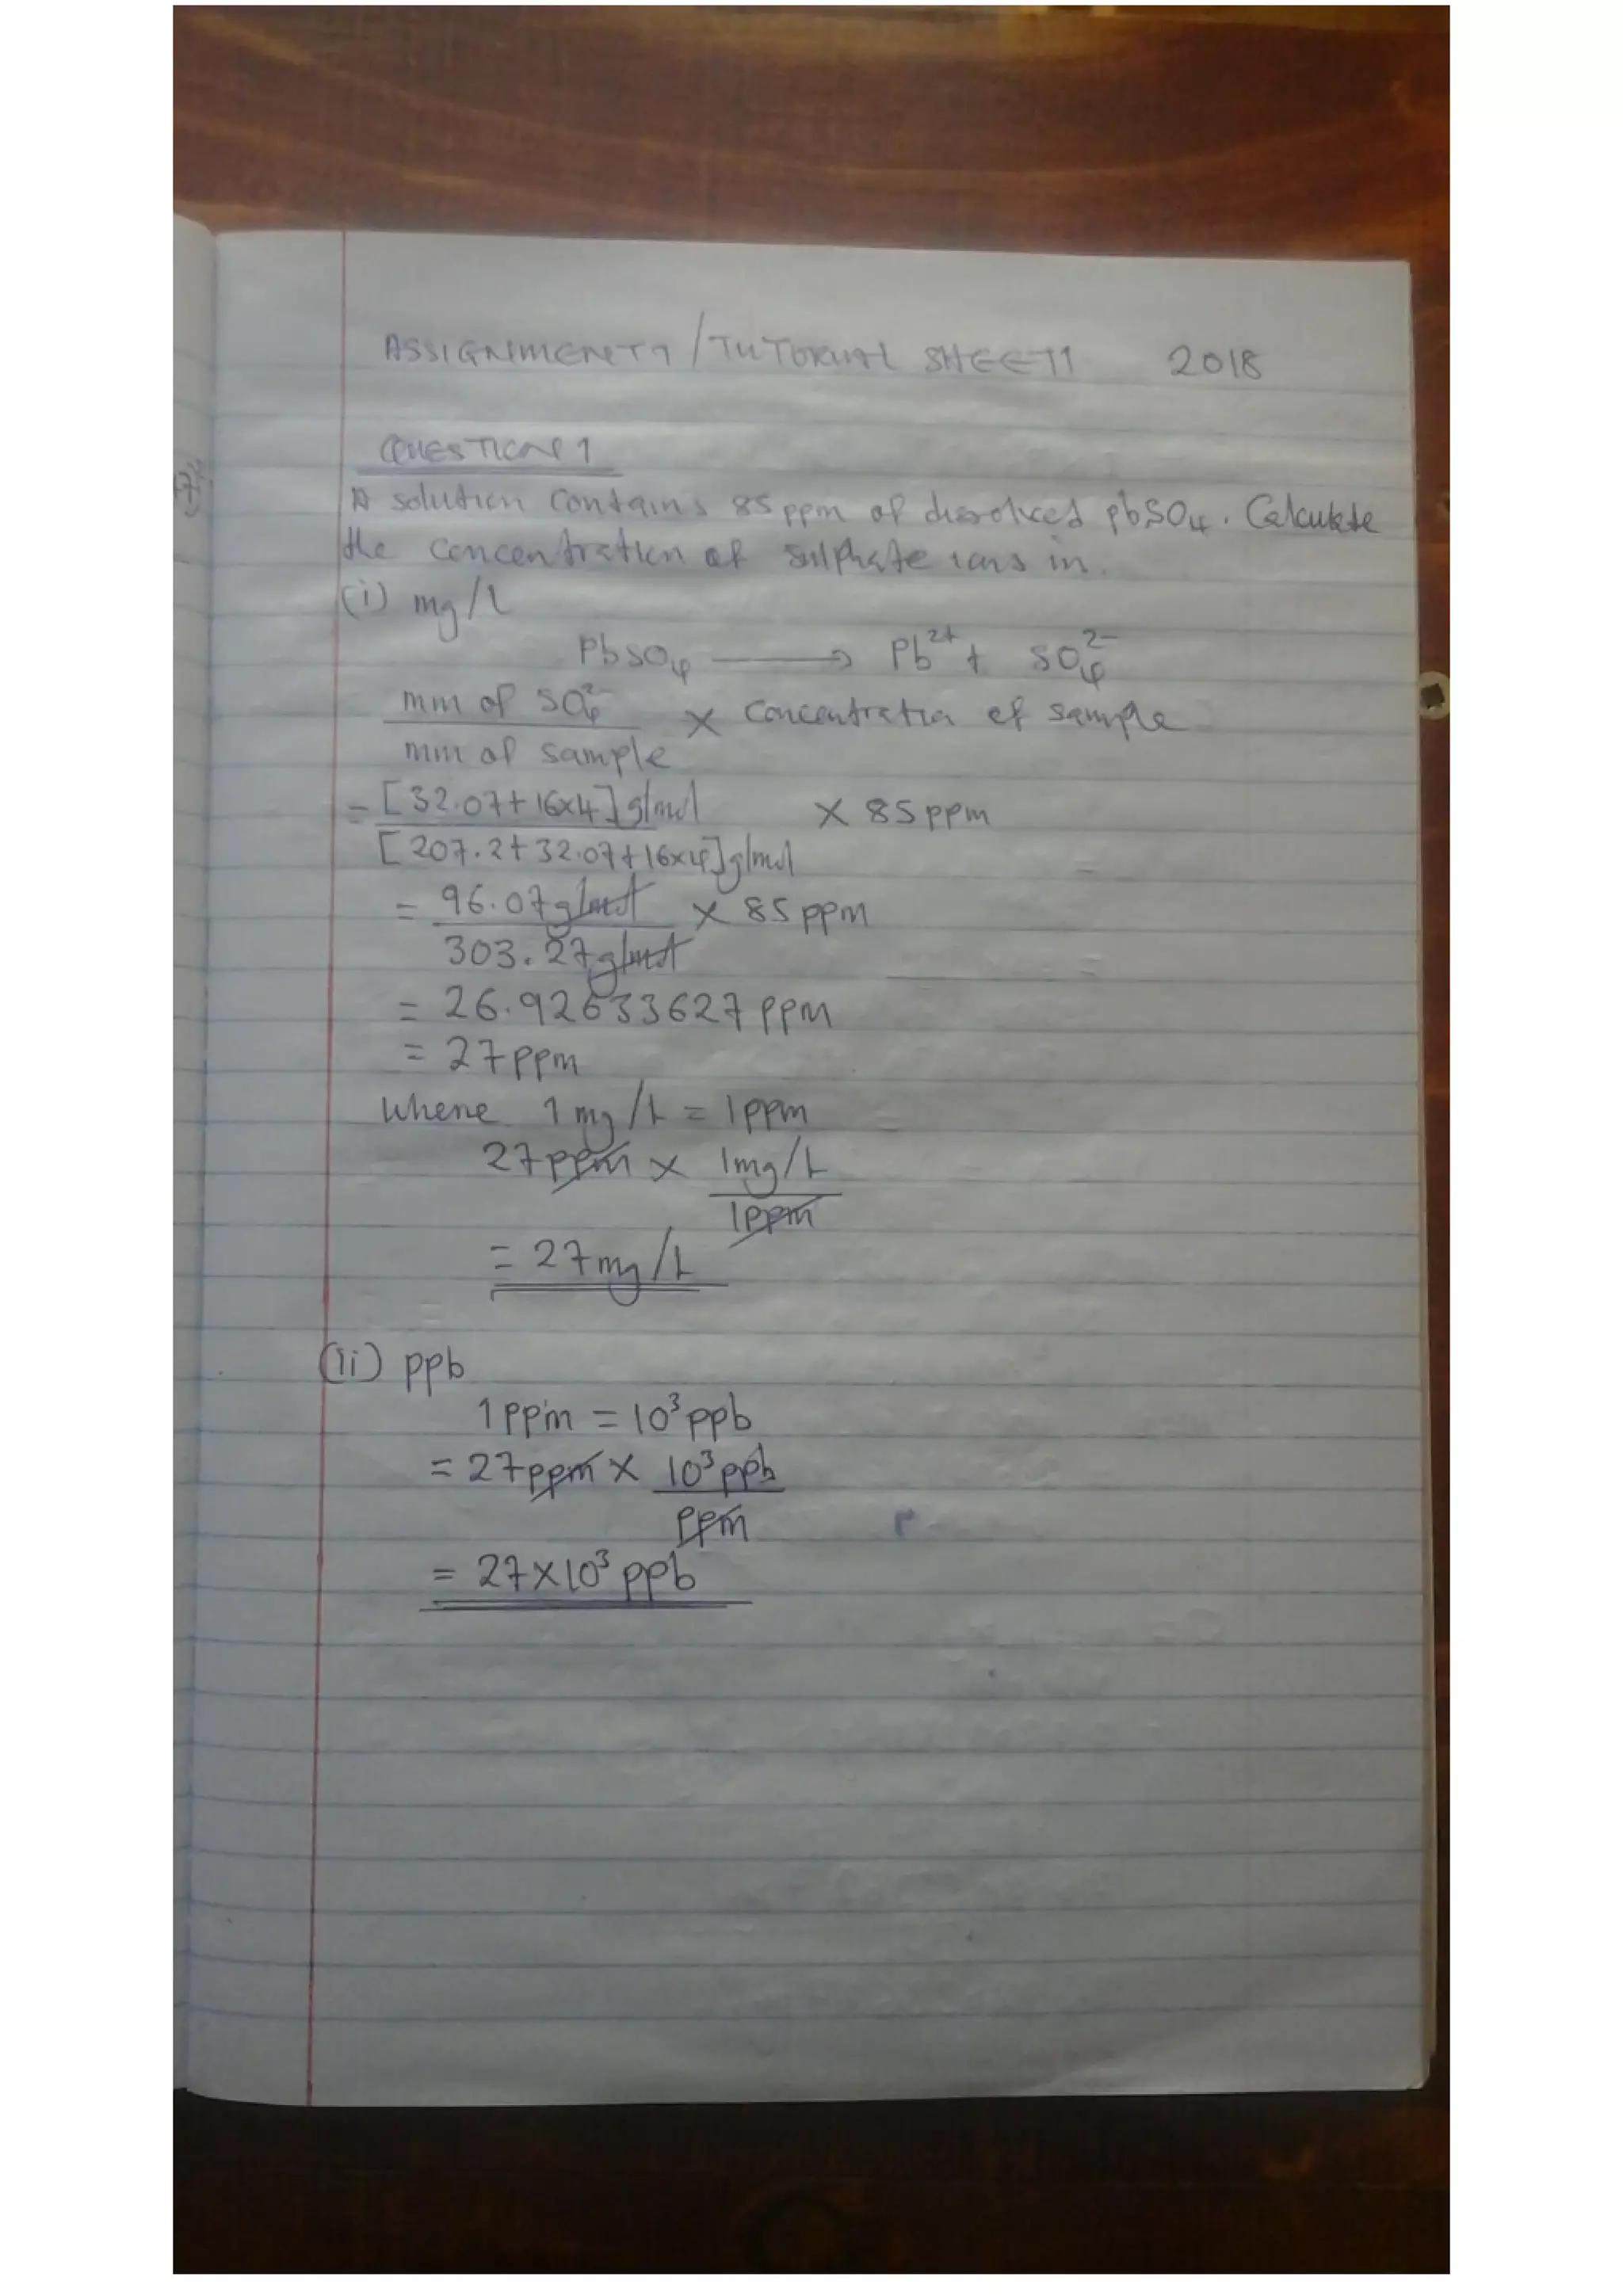 ASSIGNMENT 1 / TUTORIAL SHEET 1 2018
QUESTION 1
A solution contains 85 ppm of dissolved pbSO4. Calculate
the concentration of sulphate ions in.
(i) mg/L
PbSO4 → Pb²⁺ + SO4²⁻
mm of SO4²⁻ × concentration of sample
mm of sample
= [32.07 + 16×4] g/mol × 85 ppm
[207.2 + 32.07 + 16×4] g/mol
= 96.07 g/mol × 85 ppm
303.27 g/mol
= 26.92633627 ppm
= 27 ppm
where 1 mg/L = 1 ppm
27 ppm × 1 mg/L
1 ppm
= 27 mg/L
(ii) ppb
1 ppm = 10³ ppb
= 27 ppm × 10³ ppb
ppm
= 27×10³ ppb